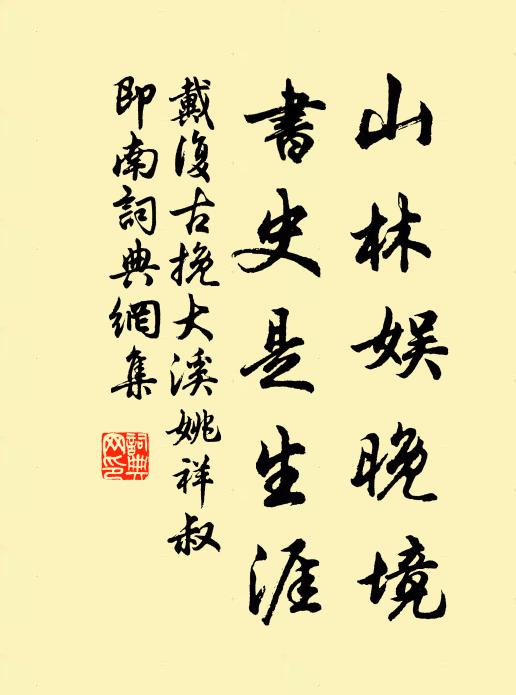 山林娱晚境
書史是生涯
戴復古挽大溪姚祥叔
即南詞典網集
詞典
网印